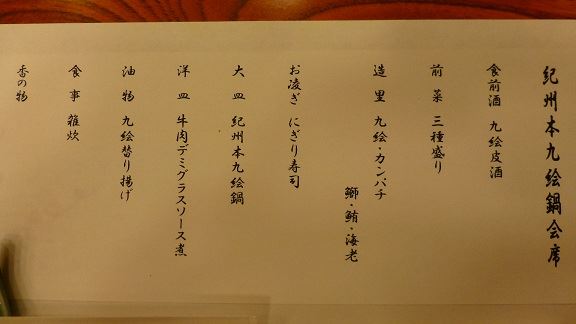 紀州本九絵鍋会席
食前酒 九絵皮酒
前菜 三種盛り
造里 九絵・カンパチ
鰤・鮪・海老
お凌ぎ にぎり寿司
大皿 紀州本九絵鍋
洋皿 牛肉デミグラスソース煮
油物 九絵替り揚げ
食事 雑炊
香の物